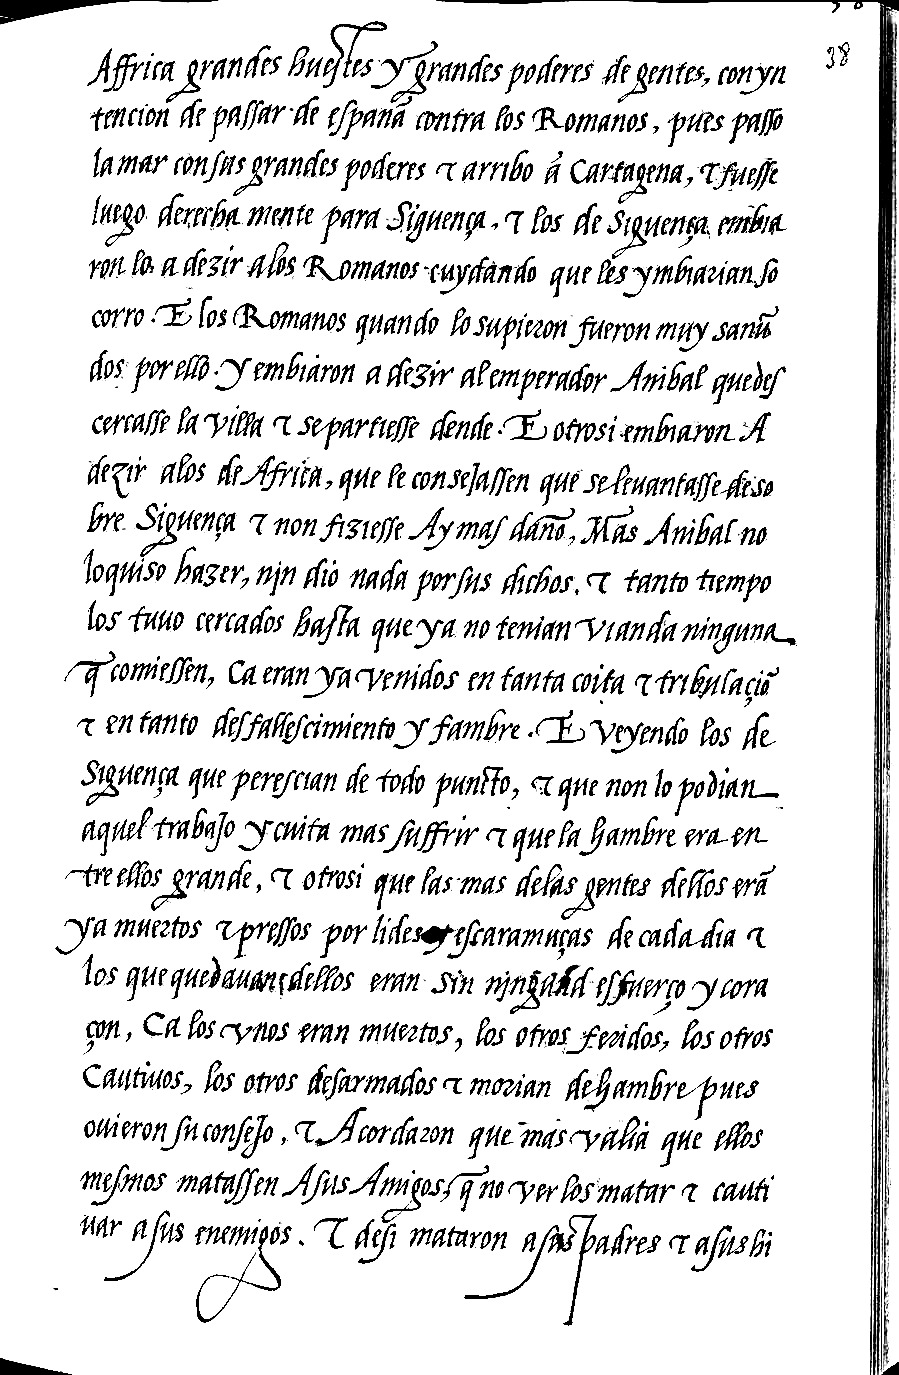 38
Affrica grandes huestes y grandes poderes de gentes, con yn
tencion de passar de españa contra los Romanos, pues passo
la mar con sus grandes poderes τ arribo á Cartagena, τ fuesse
luego derecha mente para Siguença, τ los de Siguença embia
ron lo a dezir a los Romanos cuydando que les ymbiarian so
corro. E los Romanos quando lo supieron fueron muy sanũ
dos por ello. y embiaron a dezir al emperador Anibal que des
cercasse la villa τ se partiesse dende. E otrosi embiaron A
dezir a los de Africa, que le consejassen que se levantasse de so
bre Siguença τ non fiziesse Ay mas daño, Mas Anibal no
lo quiso hazer, nin dio nada por sus dichos. τ tanto tiempo
los tuuo cercados hasta que ya no tenian vianda ninguna
q̃ comiessen, Ca eran ya venidos en tanta coita τ tribulaçiõ
τ en tanto desfallescimiento y fambre. E veyendo los de
Siguença que perescian de todo puncto, τ que non lo podian
aquel trabajo y cuita mas suffrir τ que la hambre era en
tre ellos grande, τ otrosi que las mas delas gentes dellos erã
ya muertos τ pressos por lides y escaramuças de cada dia τ
los que quedavan dellos eran sin ningund esfuerço y cora
çon, Ca los vnos eran muertos, los otros feridos, los otros
Cautiuos, los otros desarmados τ morian de hambre pues
ouieron su consejo, τ Acordaron que mas valia que ellos
mesmos matassen A sus Amigos, q̃ no ver los matar τ cauti
uar a sus enemigos. τ desi mataron a sus padres τ a sus hi